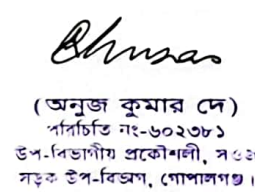 (অনুজ কুমার দে)
পরিচিতি নং-৬০২৩৮১
উপ-বিভাগীয় প্রকৌশলী, সওজ
সড়ক উপ-বিভাগ, গোপালগঞ্জ।